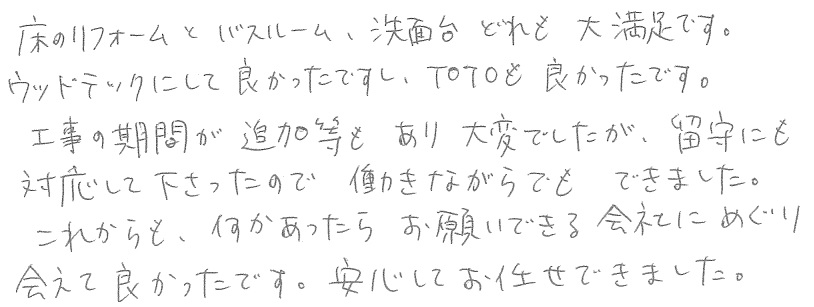 床のリフォームとバスルーム、洗面台どれも大満足です。
ウッドテックにして良かったですし、TOTOも良かったです。
工事の期間が追加等もあり大変でしたが、留守にも
対応して下さったので働きながらでもできました。
これからも、何かあったらお願いできる会社にめぐり
会えて良かったです。安心してお任せできました。